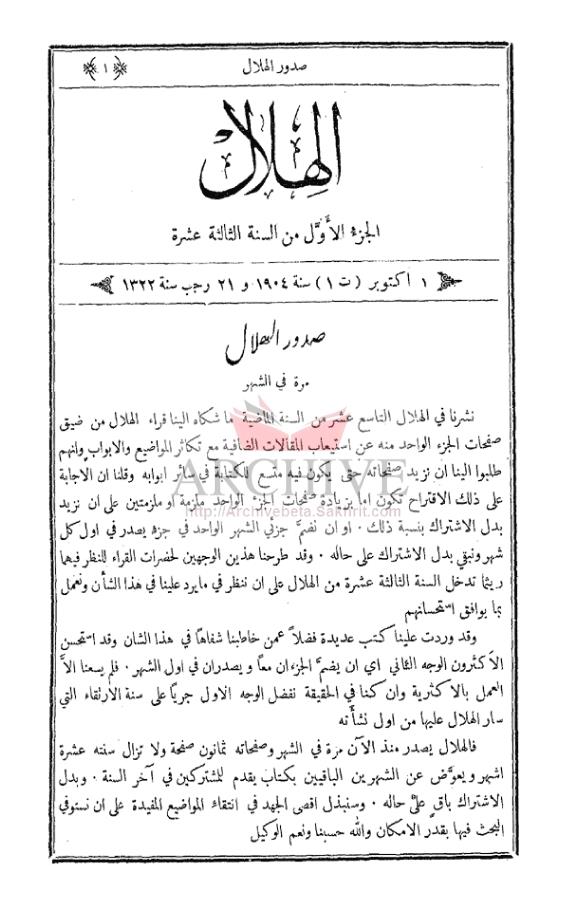 صدور الهلال
﴿١﴾
الهلال
الجزء الأوّل من السنة الثالثة عشرة
١ اكتوبر (ت١) سنة ١٩٠٤ و ٢١ رجب سنة ١٣٢٢
صدور الهلال
مرة في الشهر
نشرنا في الهلال التاسع عشر من السنة الماضية ما شكاه الينا قراء الهلال من ضيق
صفحات الجزء الواحد منه عن استيعاب المقالات الضافية مع تكاثر المواضيع والابواب وانهم
طلبوا الينا ان نزيد صفحاته حتى يكون فيه متسع للكتابة في سائر ابوابه وقلنا ان الاجابة
على ذلك الاقتراح تكون اما بزيادة صفحات الجزء الواحد ملزمة او ملزمتين على ان نزيد
بدل الاشتراك بنسبة ذلك . او ان نضمَّ جزئي الشهر الواحد في جزء يصدر في اول كل
شهر ونبقي بدل الاشتراك على حاله . وقد طرحنا هذين الوجهين لحضرات القراء للنظر فيهما
ريثما تدخل السنة الثالثة عشرة من الهلال على ان ننظر في ما يرد علينا في هذا الشأن ونعمل
بما يوافق استحسانهم
وقد وردت علينا كتب عديدة فضلاً عمن خاطبنا شفاهاً في هذا الشان وقد استحسن
الاكثرون الوجه الثاني اي ان يضمَّ الجزءان معاً ويصدران في اول الشهر . فلم يسعنا الاَّ
العمل بالاكثرية وان كنا في الحقيقة نفضل الوجه الاول جرياً على سنة الارتقاء التي
سار الهلال عليها من اول نشأته
فالهلال يصدر منذ الآن مرة في الشهر وصفحاته ثمانون صفحة ولا تزال سنته عشرة
اشهر ويعوَّض عن الشهرين الباقيين بكتاب يقدم للمشتركين في آخر السنة . وبدل
الاشتراك باق على حاله . وسنبذل اقصى الجهد في انتقاء المواضيع المفيدة على ان نستوفي
البحث فيها بقدر الامكان والله حسبنا ونعم الوكيل
ARCHIVE
http://Archivebeta.Sakhrit.com